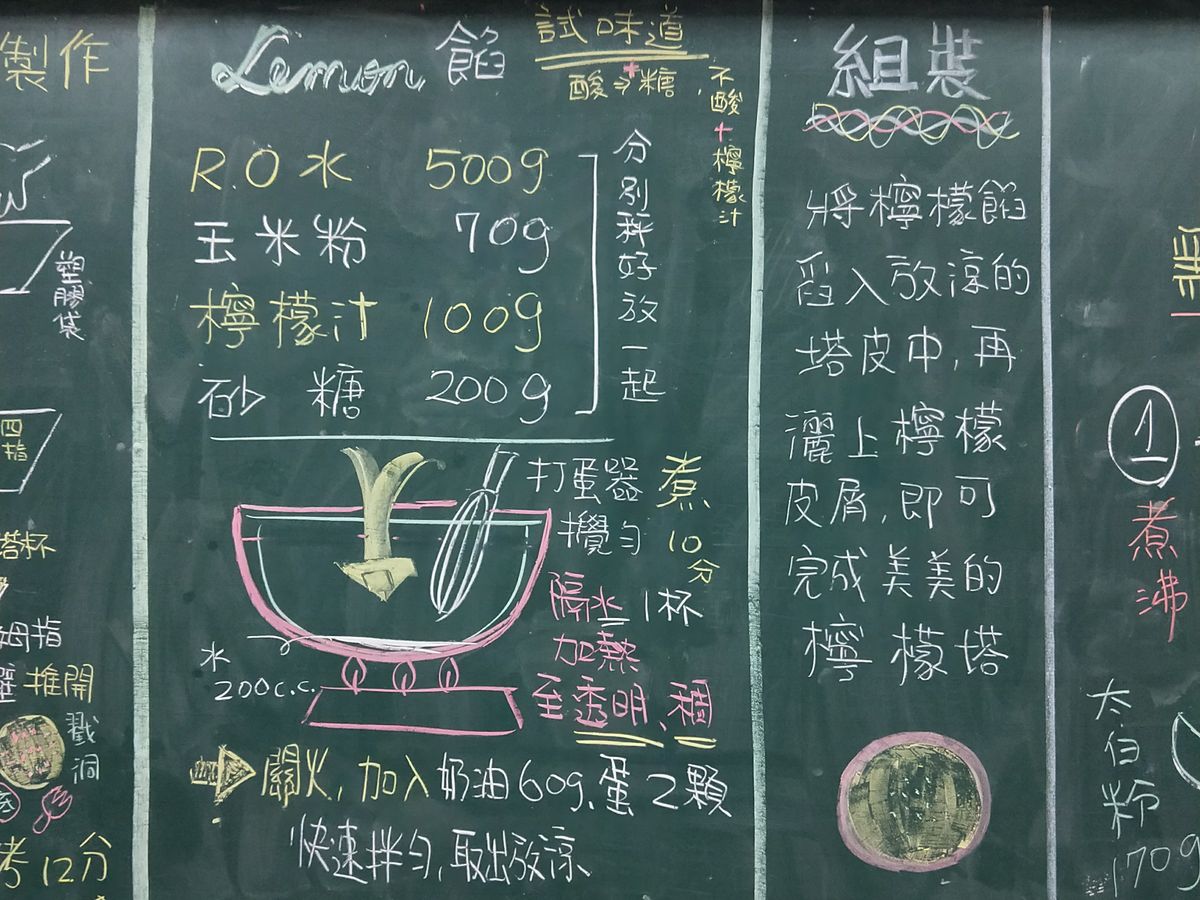 製作
塑膠袋
四指
塔杯
姆指
推開
戳洞
烤12分
Lemon 餡
試味道
酸→糖,
不酸+檸檬汁
R.O水 500g
玉米粉 70g
檸檬汁 100g
砂糖 200g
分別秤好放一起
打蛋器
攪勻
煮
10
分
隔水 1杯
加熱
至透明、稠
水
200c.c.
關火,加入奶油60g、蛋2顆
快速拌勻,取出放涼
組裝
將檸檬餡
舀入放涼的
塔皮中,再
灑上檸檬
皮屑,即可
完成美美的
檸檬塔
1
煮沸
太白粉
170g